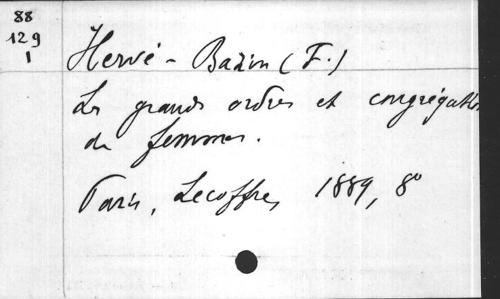 88
129
1
Hervé-Bazin (F.)
Les grands ordres et congrégations
de femmes.
Paris, Lecoffre, 1889, 8°